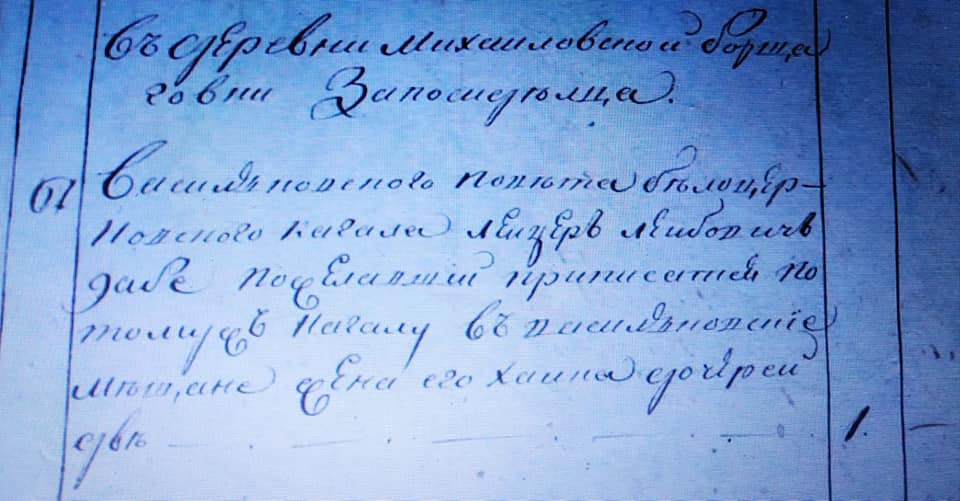 Въ деревни Михайловской борща
говки
Васильковского повѣта бѣлоцер-
ковского кагала Лейзеръ Лейбовичъ
пожелавший приписатся по
томужъ кагалу въ васильковские
мѣщане жена его Хаика дочерей
двѣ 1.